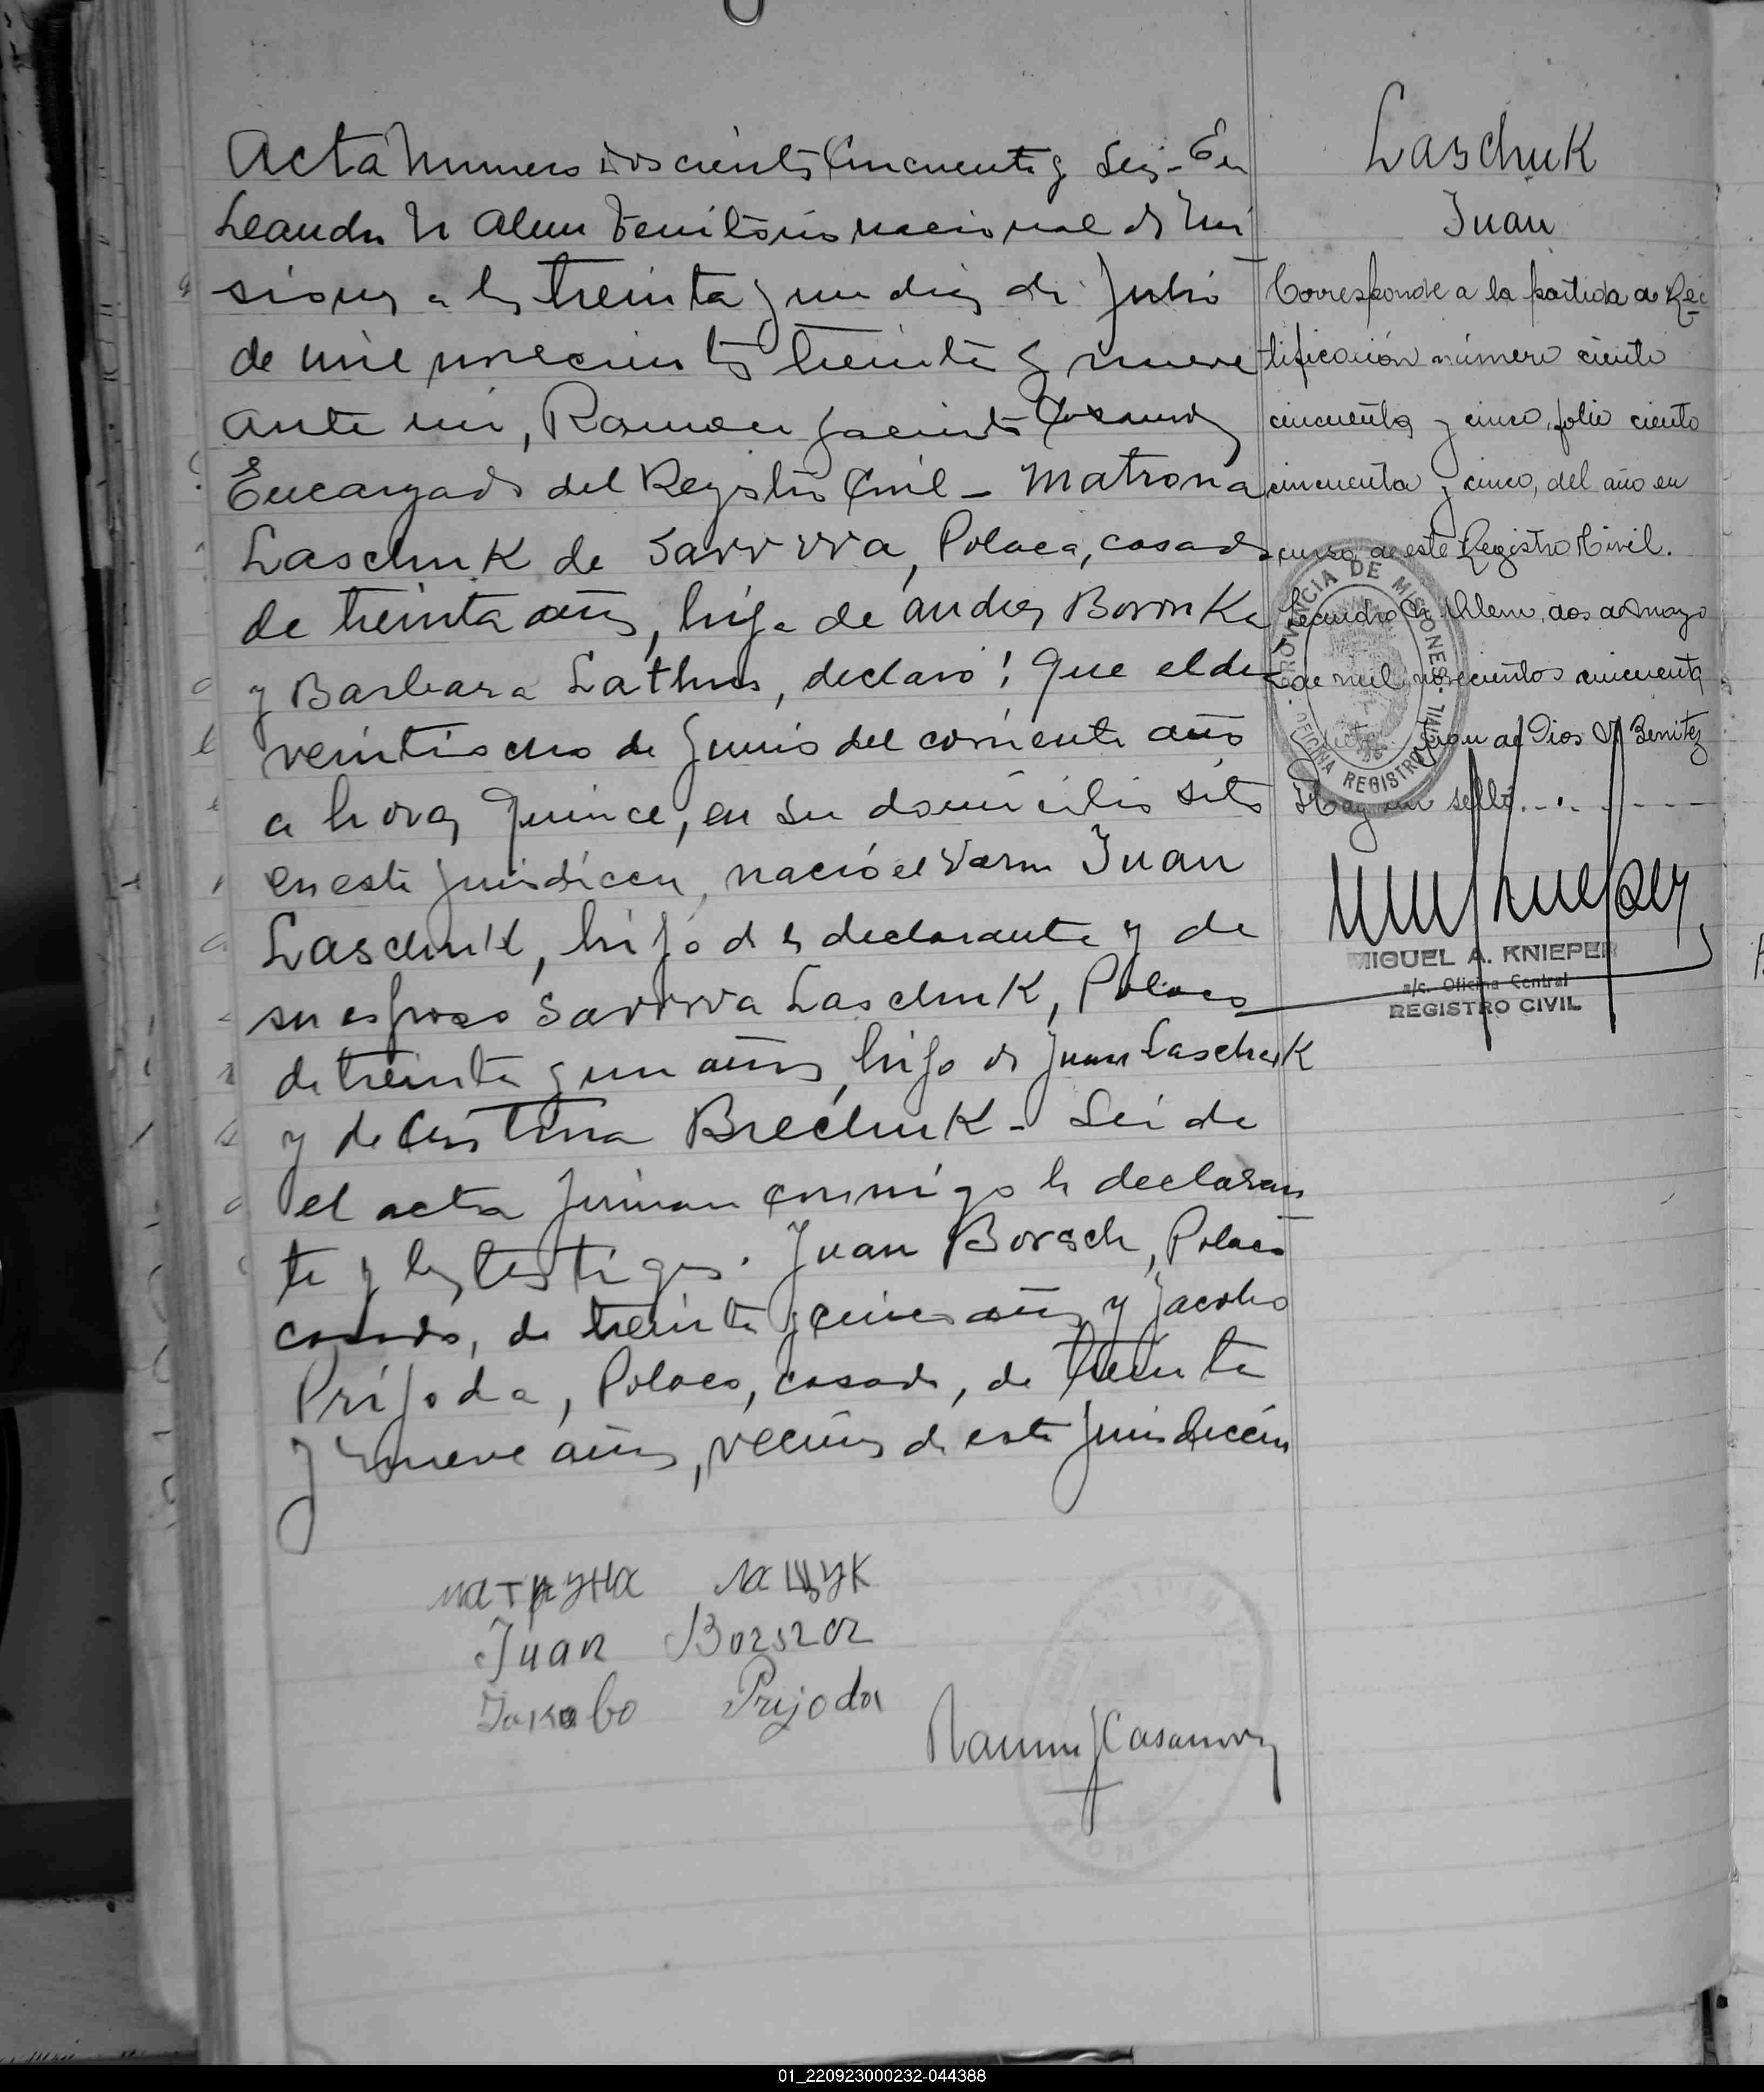 Acta Numero doscientos Cincuenta y Seis - En
Leandro N Alem Territorio nacional de Mi
siones a los treinta y un dias de Julio
de mil novecientos treinta y nueve
ante mi, Ramon Jacinto Casanova
Encargado del Registro Civil - Matrona
Laschuk de Savvva, Polaca, casada
de treinta años, hija de Andres Boronka
y Barbara Lathus, declaró: Que el dia
veintiocho de Junio del corriente año
a horas quince, en su domicilio sito
en esta jurisdiccion, nació el Varon Juan
Laschuk, hijo de la declarante y de
su esposo Savvva Laschuk, Polaco
de treinta y un años, hijo de Juan Laschuk
y de Cristina Brechuk - Leida
el acta firman conmigo la declaran
te y los testigos. Juan Borsch, Polaco
casado, de treinta y cinco años y Jacobo
Prijoda, Polaco, casado, de treinta
y nueve años, vecinos de esta jurisdiccion
матруна лащук
Juan Borszcz
Jakobo Prijoda
Ramon J Casanova
Laschuk
Juan
Corresponde a la partida de Rec
tificación número ciento
cincuenta y cinco, folio ciento
cincuenta y cinco, del año en
curso de este Registro Civil.
Leandro N. Alem, dos de mayo
de mil novecientos cincuenta
Juan de Dios V Benitez
Hay un sello
PROVINCIA DE MISIONES
OFICINA REGISTRO CIVIL
MIGUEL A. KNIEPER
a/c. Oficina Central
REGISTRO CIVIL
01_220923000232-044388